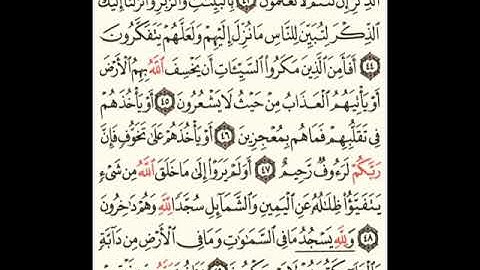 الذِّكْرِ إِن كُنتُمْ لَا تَعْلَمُونَ ٤٣ بِالْبَيِّنَٰتِ وَالزُّبُرِ وَأَنزَلْنَا إِلَيْكَ
الذِّكْرَ لِتُبَيِّنَ لِلنَّاسِ مَا نُزِّلَ إِلَيْهِمْ وَلَعَلَّهُمْ يَتَفَكَّرُونَ
٤٤ أَفَأَمِنَ الَّذِينَ مَكَرُوا السَّيِّـَٔاتِ أَن يَخْسِفَ اللَّهُ بِهِمُ الْأَرْضَ
أَوْ يَأْتِيَهُمُ الْعَذَابُ مِنْ حَيْثُ لَا يَشْعُرُونَ ٤٥ أَوْ يَأْخُذَهُمْ
فِى تَقَلُّبِهِمْ فَمَا هُم بِمُعْجِزِينَ ٤٦ أَوْ يَأْخُذَهُمْ عَلَىٰ تَخَوُّفٍ فَإِنَّ
رَبَّكُمْ لَرَءُوفٌ رَّحِيمٌ ٤٧ أَوَلَمْ يَرَوْا إِلَىٰ مَا خَلَقَ اللَّهُ مِن شَىْءٍ
يَتَفَيَّؤُا ظِلَٰلُهُ عَنِ الْيَمِينِ وَالشَّمَآئِلِ سُجَّدًا لِّلَّهِ وَهُمْ دَٰخِرُونَ
٤٨ وَلِلَّهِ يَسْجُدُ مَا فِى السَّمَٰوَٰتِ وَمَا فِى الْأَرْضِ مِن دَآبَّةٍ